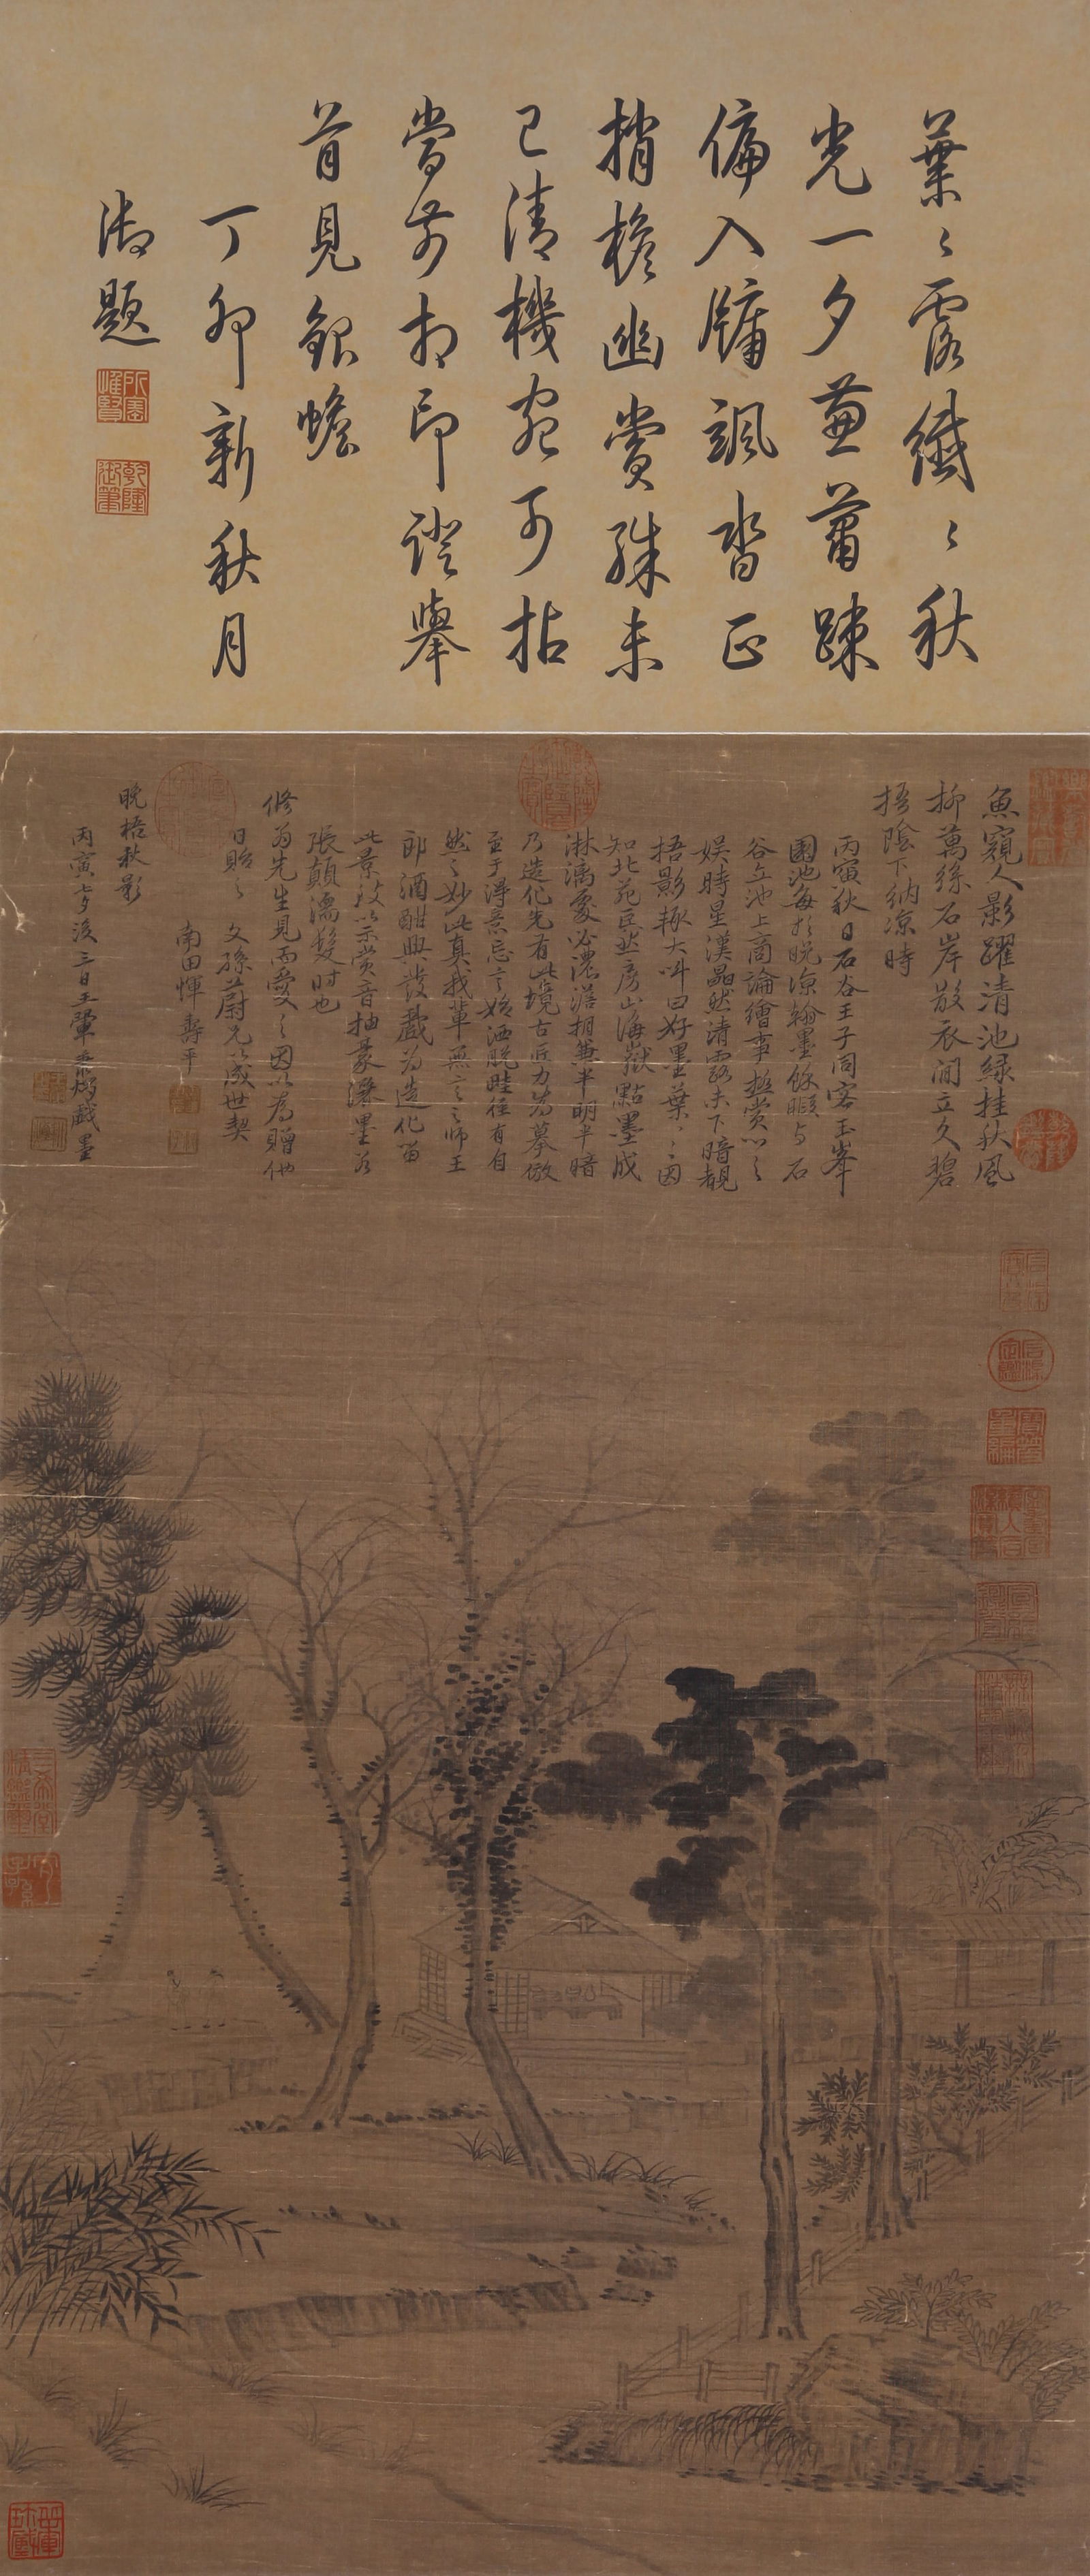 葉〻露纖〻秋
光一夕蕭蕭疎
偏入牖颯沓正
捎檐幽賞殊未
已清機宛可拈
當前相即證舉
首見銀蟾
丁卯新秋月
御題
所寶惟賢
乾隆御筆
魚窺人影躍清池綠挂秋風
柳萬絲石岸散衣閒立久碧
梧陰下納凉時
丙寅秋日石谷王子同客玉峯
園池每於晚凉翰墨餘暇与石
谷立池上商論繪事極賞心之
娱時星漢晶然清露未下暗覩
梧影輒大呌曰好墨葉〻因
知北苑巨然房山海嶽點墨成
淋漓處必濃澹相兼半明半暗
乃造化先有此境古匠力為摹倣
至于得意忘言始洒脱畦徑有自
然之妙此真我輩無言之師王
郎酒酣興發戲為造化留
此景致以示賞音抽豪潑墨若
張顛濡髮時也
修翁先生見而愛之因以為贈他
日貽之文孫蔚兄以成世契
南田惲壽平
晚梧秋影
丙寅七夕後三日王翬秉燭戲墨